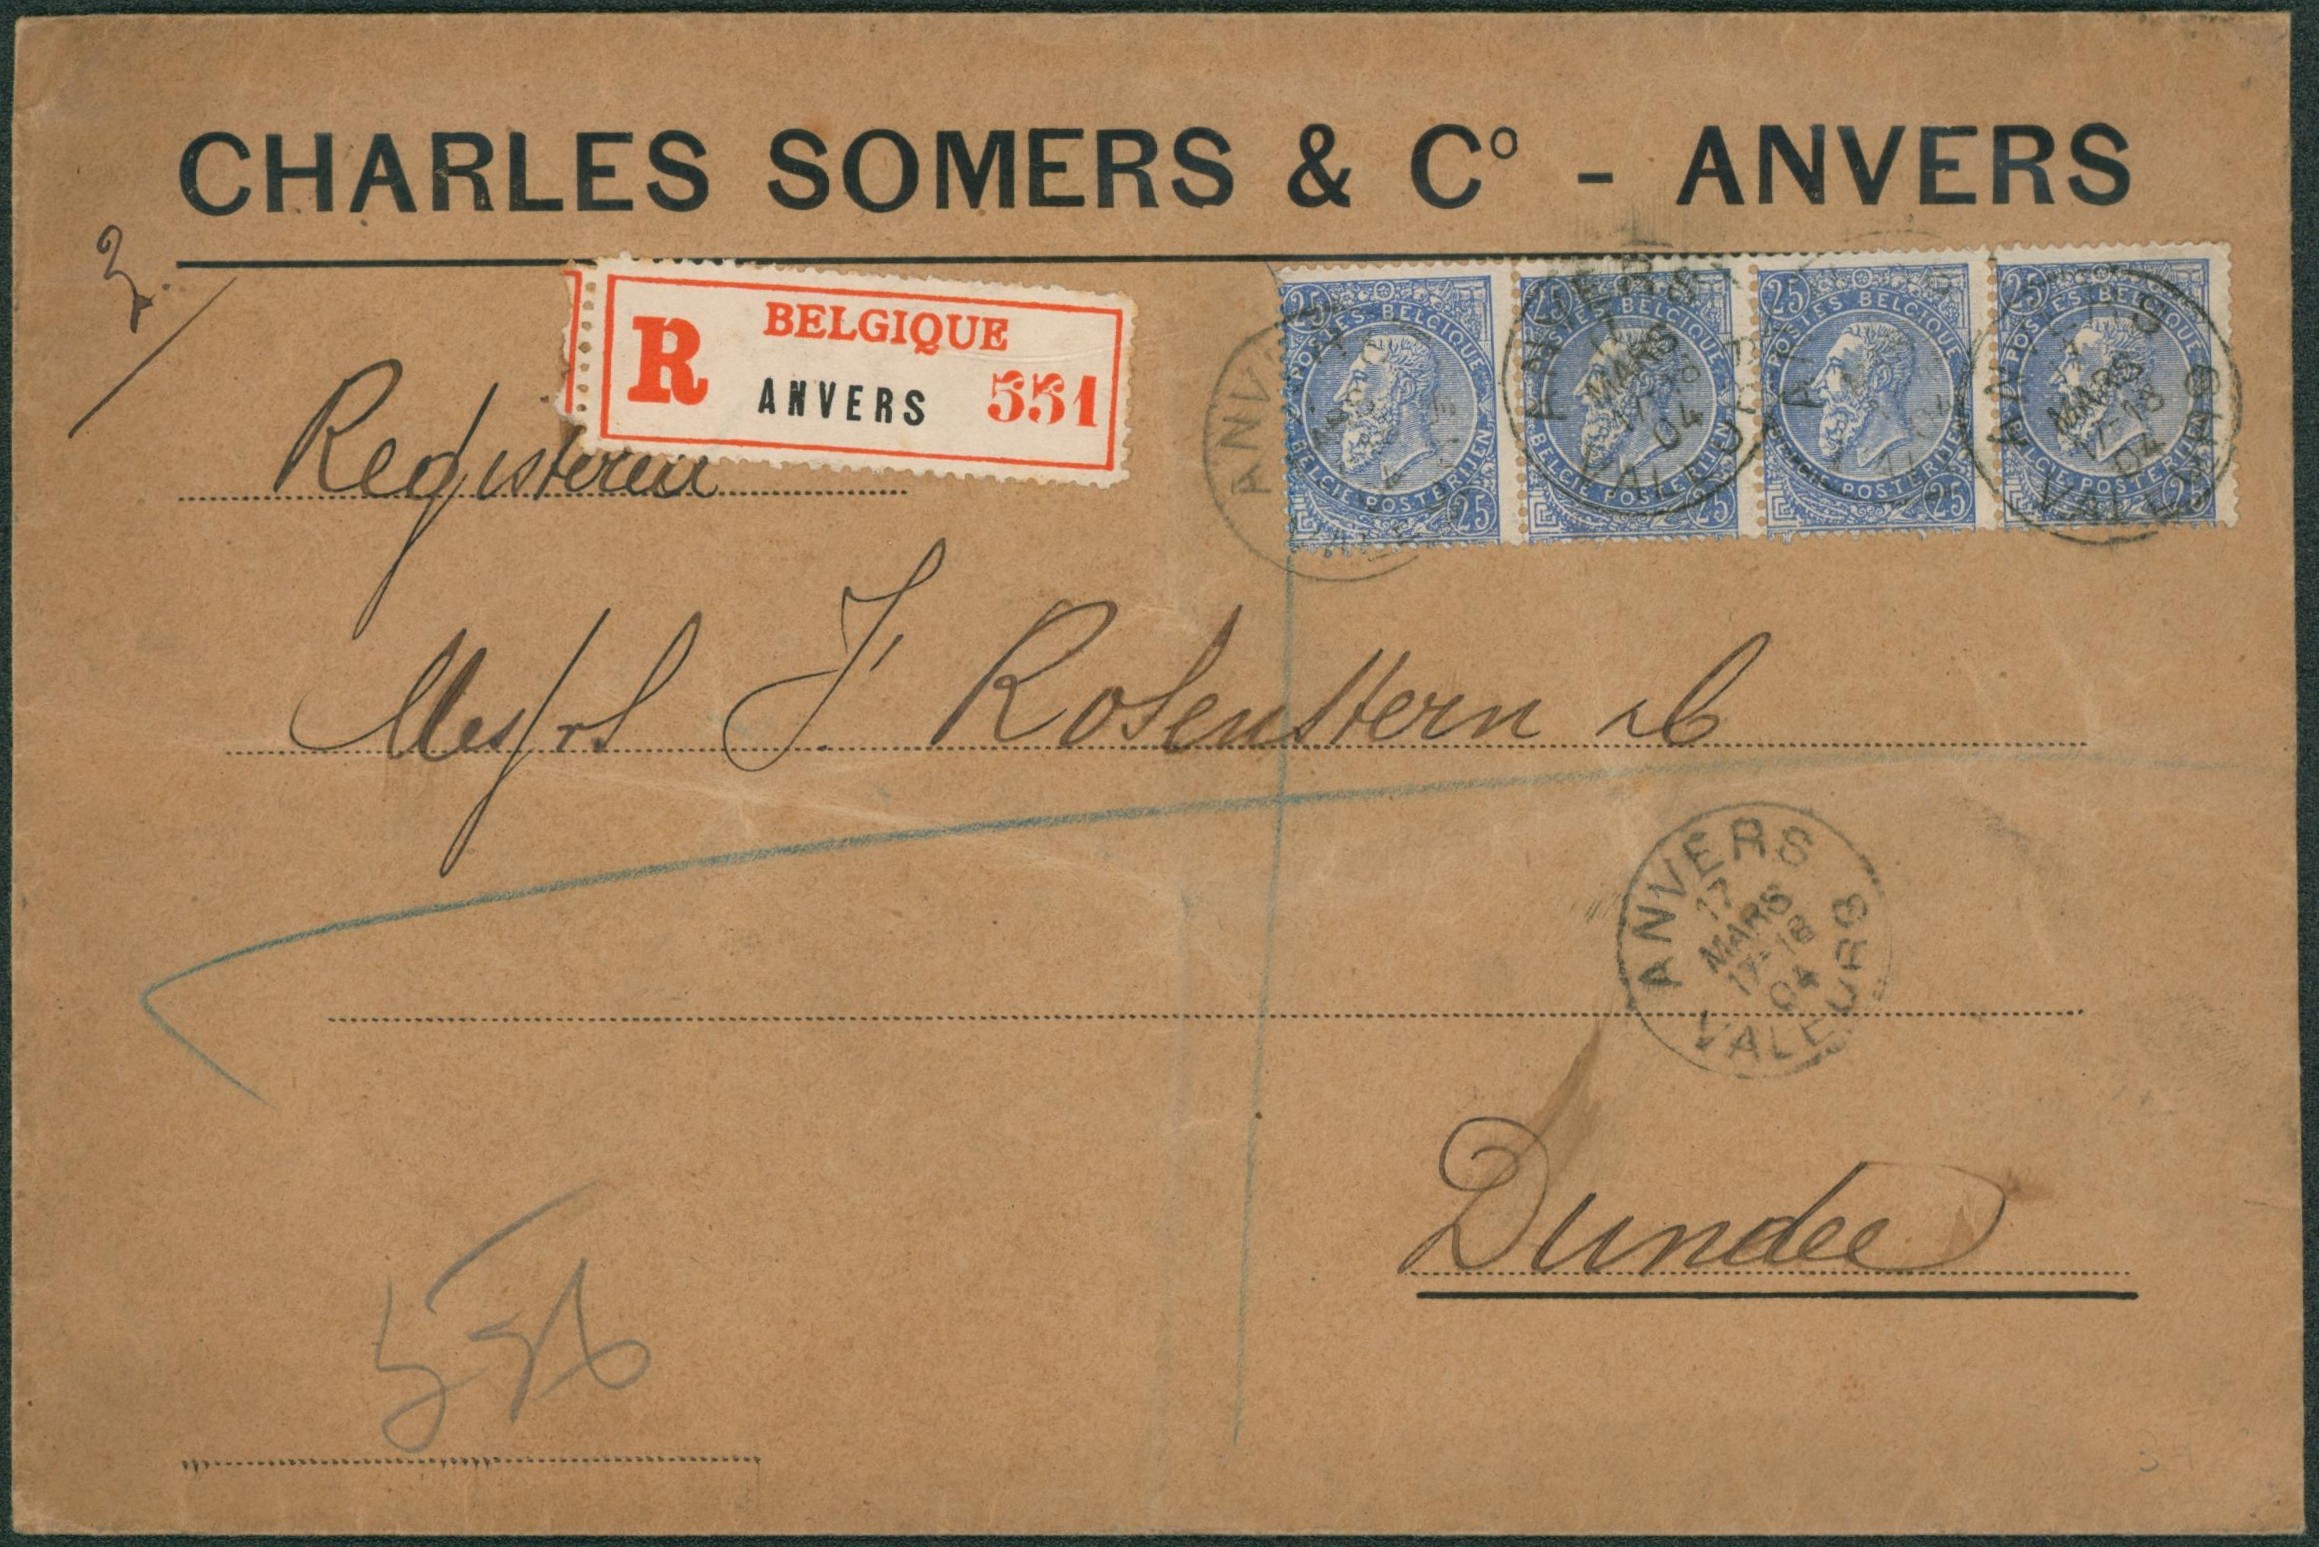 CHARLES SOMERS & Cº - ANVERS
R BELGIQUE
ANVERS 551
25 25 25 25
POSTES BELGIQUE POSTES BELGIQUE POSTES BELGIQUE POSTES BELGIQUE
BELGIE POSTERIJEN BELGIE POSTERIJEN BELGIE POSTERIJEN BELGIE POSTERIJEN
25 25 25 25
ANVERS
17
MARS
17-18
04
VALEURS
Registered
Messrs F. Rosenstern & C
ANVERS
17
MARS
17-18
04
VALEURS
Dundee